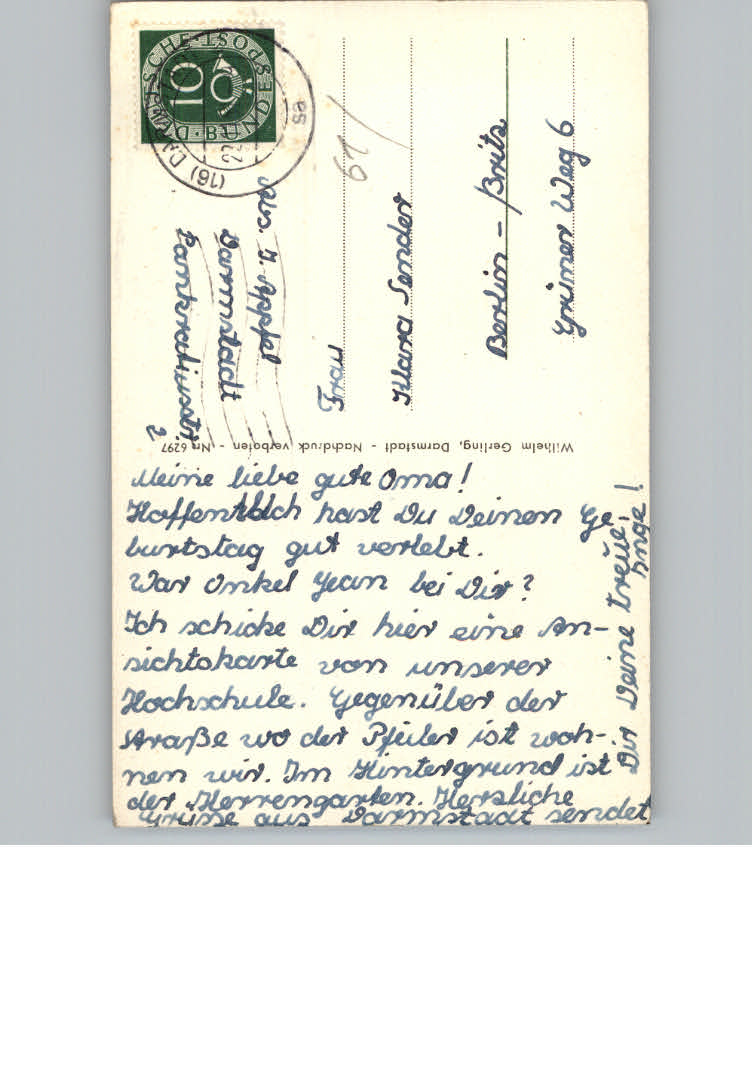 Meine liebe gute Oma!
Hoffentlich hast Du Deinen Ge-
burtstag gut verlebt.
War Onkel Jean bei Dir?
Ich schicke Dir hier eine An-
sichtskarte von unserer
Hochschule. Gegenüber der
Straße wo der Pfeiler ist woh-
nen wir. Im Hintergrund ist
der Herrengarten. Herzliche
Grüsse aus Darmstadt sendet
Dir Deine treue
Inge!
Wilhelm Gerling, Darmstadt - Nachdruck verboten - Nr. 6297
Abs. J. Appel
Darmstadt
Pankratiusstr.
2
Frau
Klara Sender
Berlin - Britz
Grüner Weg 6
61/
DEUTSCHE BUNDESPOST
10
(16)
es